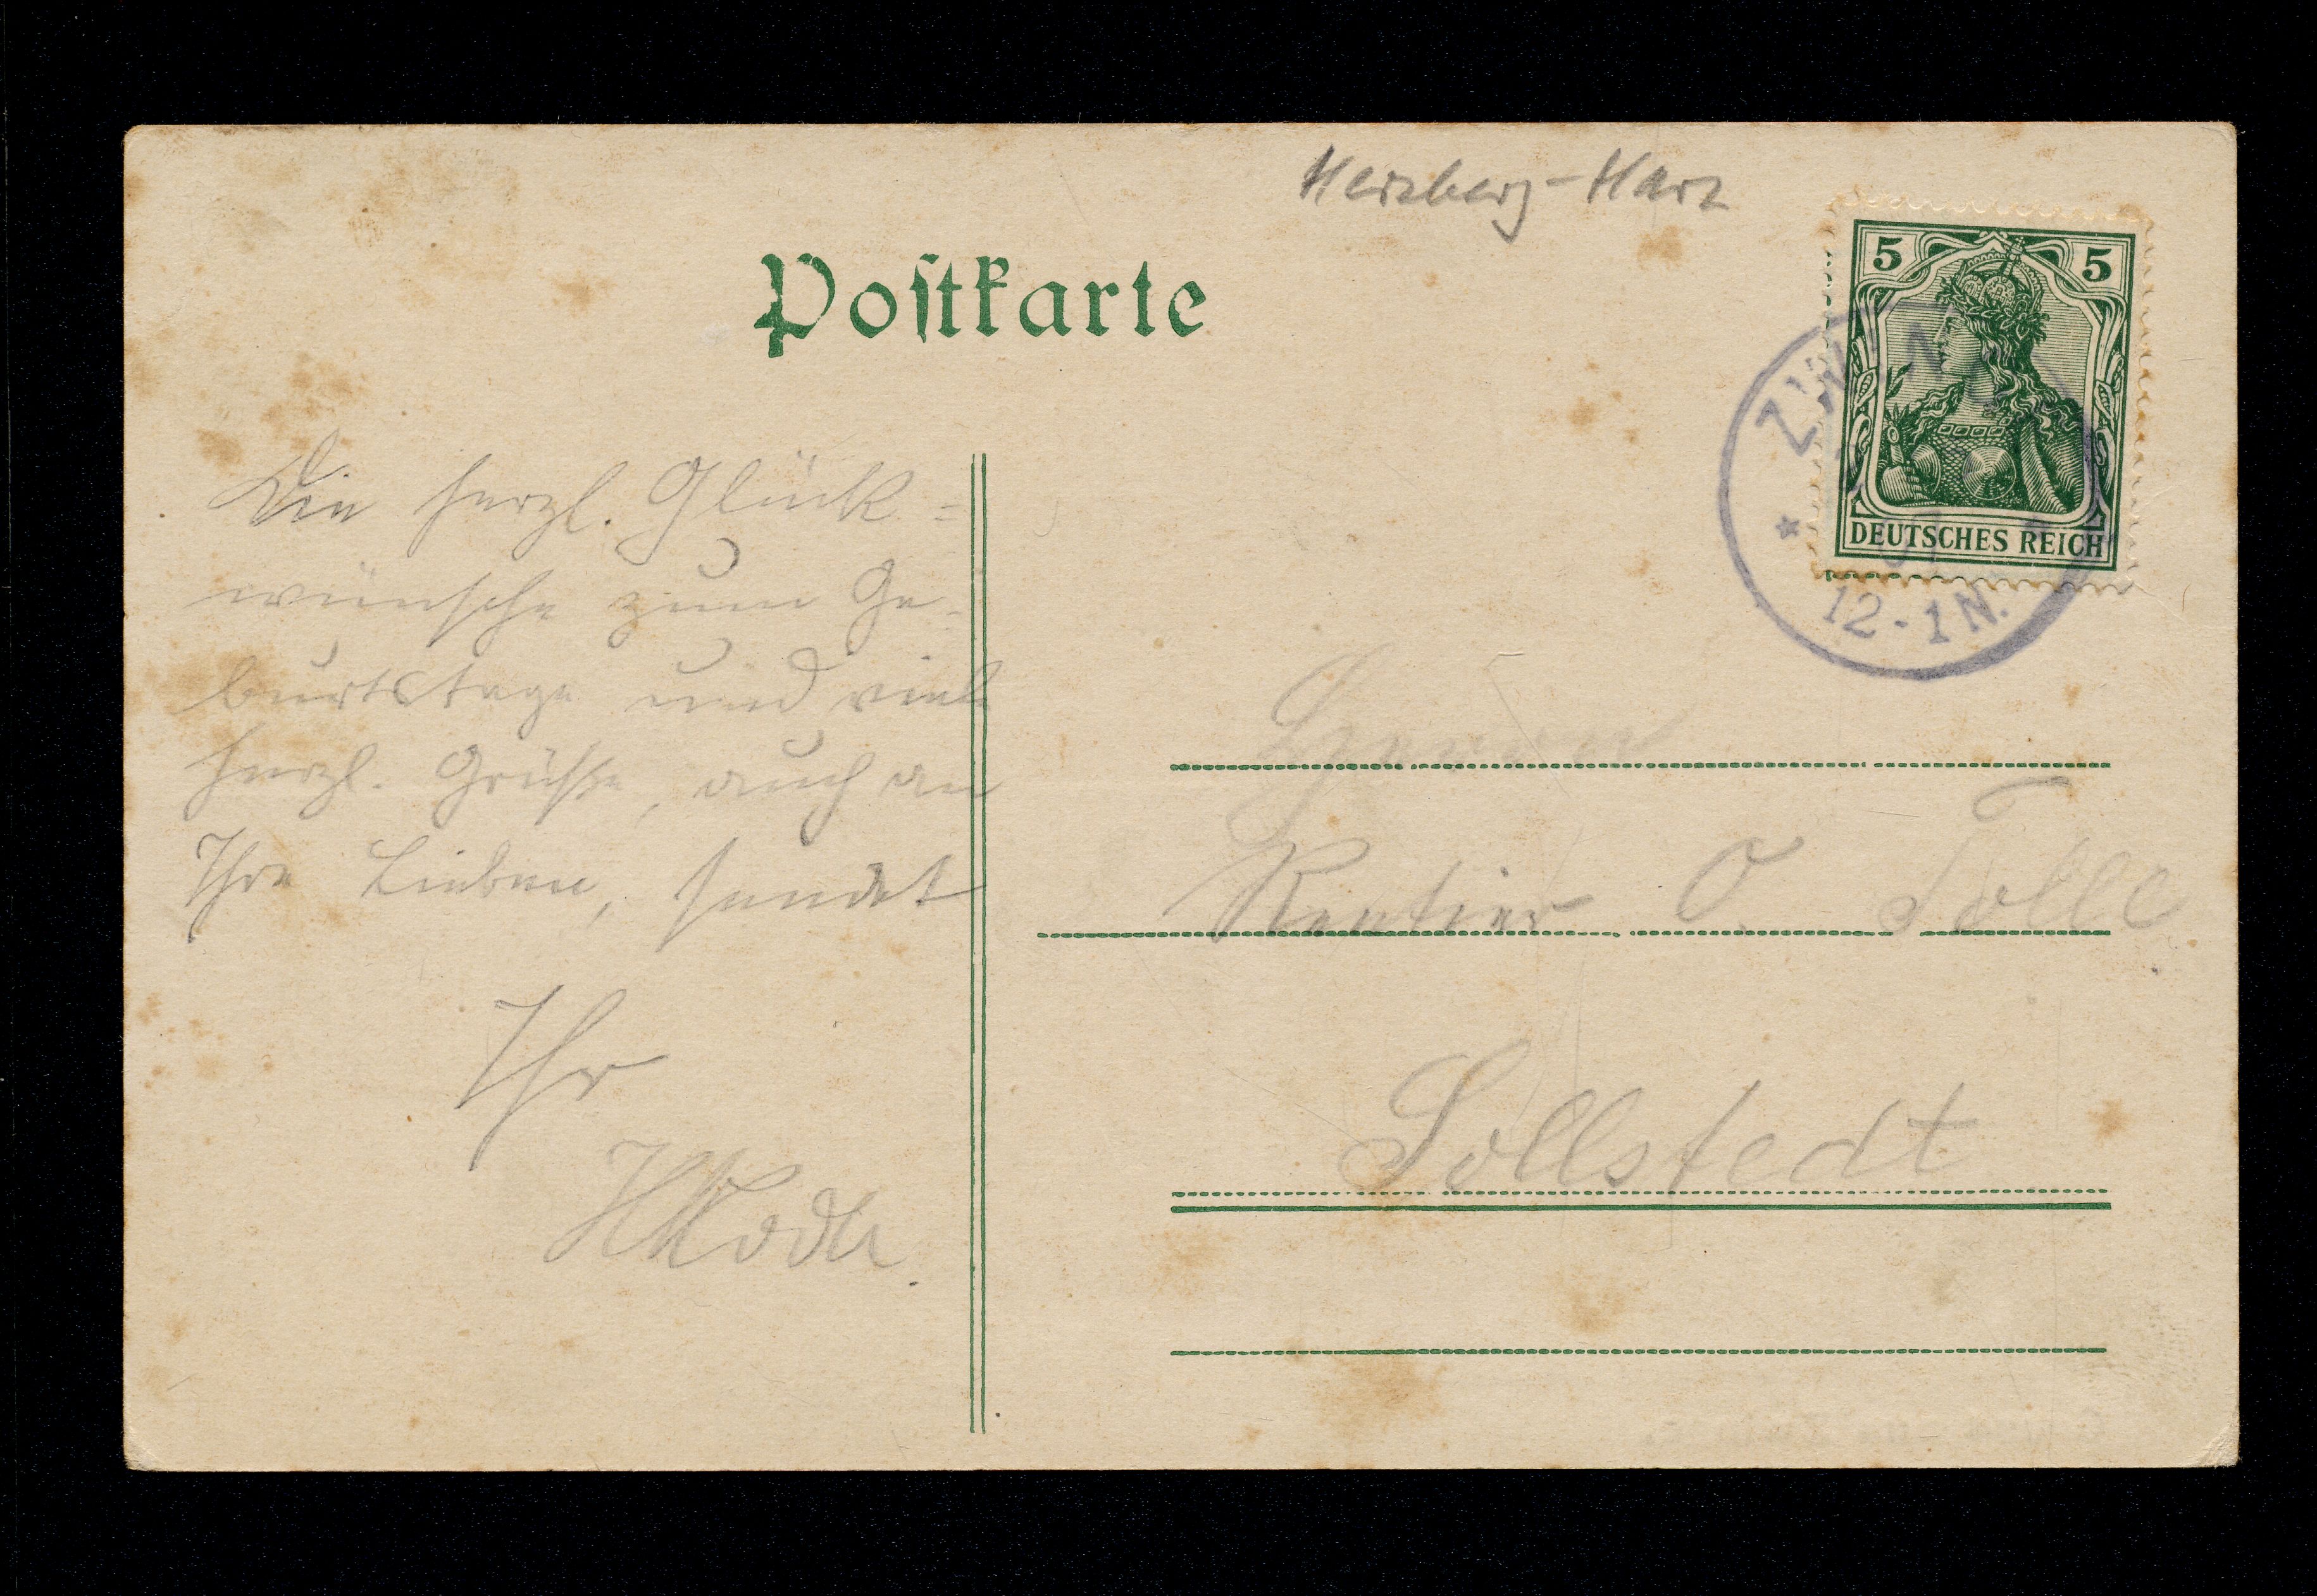 Herzberg-Harz
Postkarte
5 5
DEUTSCHES REICH
12-1N.
Die herzl. Glück=
wünsche zum Ge-
burtstage und viele
herzl. Grüße, auch an
Ihre Lieben, sendet
Ihr
Herrn
Rentier O. Tolle
Sollstedt